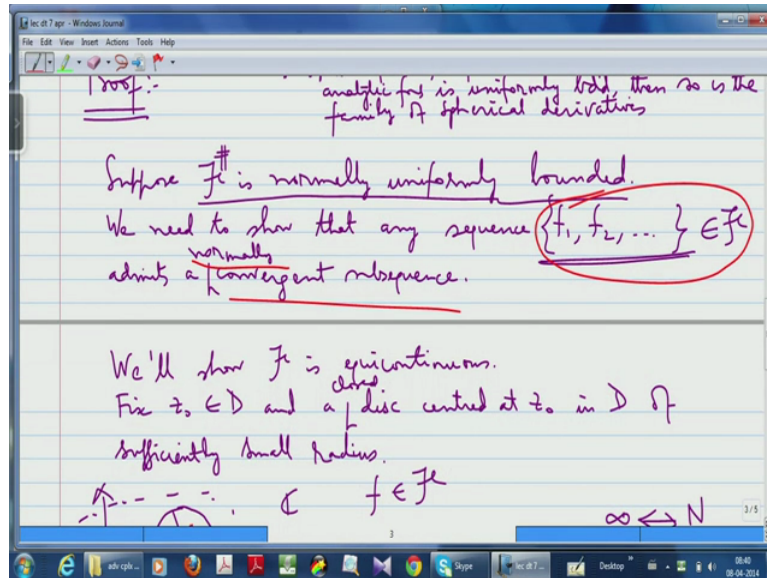 lec dt 7 apr - Windows Journal
File Edit View Insert Actions Tools Help
Proof:- analytic fns is uniformly bdd, then so is the
family of spherical derivatives
Suppose ℱ^# is normally uniformly bounded.
We need to show that any sequence {f₁, f₂, ... } ∈ ℱ
normally
admits a convergent subsequence.
We'll show ℱ is equicontinuous.
closed
Fix z₀ ∈ D and a disc centred at z₀ in D of
sufficiently small radius.
ℂ f ∈ ℱ ∞ ↔ N
3/5
3
adv cplx ... Skype lec dt 7 ... Desktop 08:40
08-04-2014